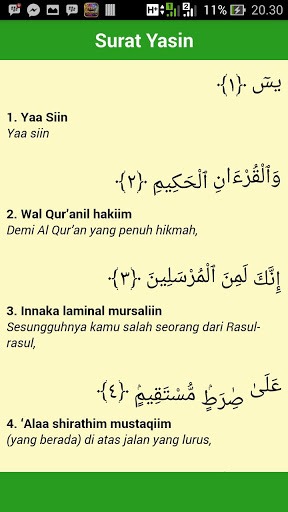 11% 20.30
Surat Yasin
يسٓ ﴿١﴾
1. Yaa Siin
Yaa siin
وَٱلْقُرْءَانِ ٱلْحَكِيمِ ﴿٢﴾
2. Wal Qur'anil hakiim
Demi Al Qur'an yang penuh hikmah,
إِنَّكَ لَمِنَ ٱلْمُرْسَلِينَ ﴿٣﴾
3. Innaka laminal mursaliin
Sesungguhnya kamu salah seorang dari Rasul-
rasul,
عَلَىٰ صِرَٰطٍۢ مُّسْتَقِيمٍۢ ﴿٤﴾
4. 'Alaa shirathim mustaqiim
(yang berada) di atas jalan yang lurus,